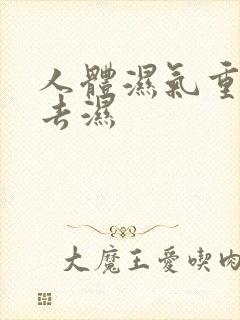 人體濕氣重
去濕
大魔王愛喫肉